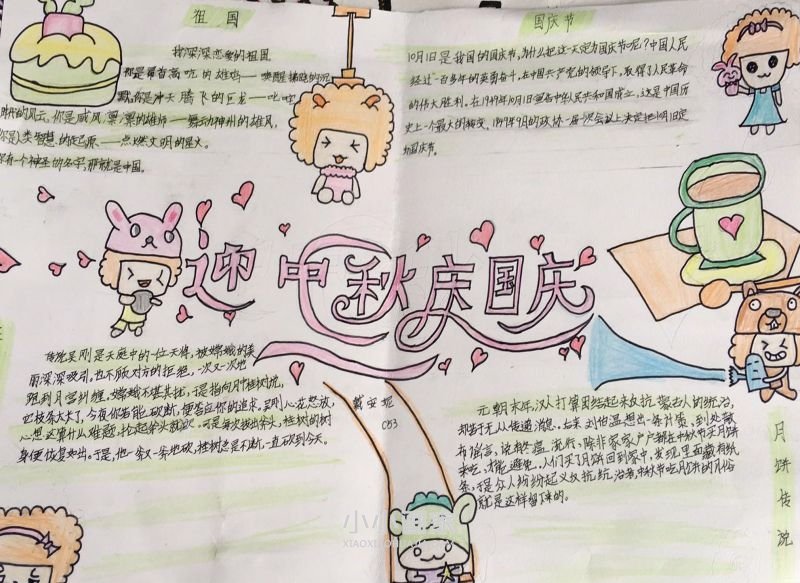 祖国
我深深恋爱的祖国
你是昂首高吭的雄鸡——唤醒拂晓的沉
默,你是冲天腾飞的巨龙——叱咤
时代的风云,你是威风凛凛的雄狮——舞动神州的雄风,
你是人类智慧的起源——点燃文明的星火。
你有一个神圣的名字,那就是中国。
国庆节
10月1日是我国的国庆节,为什么把这一天定为国庆节呢?中国人民
经过一百多年的英勇奋斗,在中国共产党的领导下,取得了人民革命
的伟大胜利。在1949年10月1日宣告中华人民共和国成立,这是中国历
史上一个最大的转变。1949年9月的政协一届一次会议上决定把10月1日定
为国庆节。
迎中秋庆国庆
传说吴刚是天庭中的一位天将,被嫦娥的美
丽深深吸引,也不顾对方的拒绝,一次又一次地
跑到月宫纠缠,嫦娥不堪其扰,于是指向月中桂树说,
这枝条太长了,今夜你若能砍断,便答应你的追求。吴刚心花怒放,
心想这算什么难题,抡起斧头就砍。可是每次拔出斧头,桂树的树
身便恢复如出。于是,他一斧又一斧地砍,桂树总是不断,一直砍到今天。
戴安妮
053
元朝末年,汉人打算团结起来反抗蒙古人的统治,
却苦于无人传递消息。后来刘伯温想出一条计策,到处散
布谣言,说有冬瘟流行,除非家家户户都在中秋节买月饼
来吃,才能避免。人们买了月饼回到家中,发现里面藏有纸
条,于是众人纷纷起义反抗统治者,中秋节吃月饼的月俗
就是这样留下来的。
月饼传说